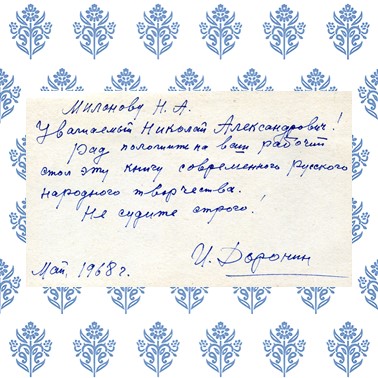 Миланову Н. А.
Уважаемый Николай Александрович!
Рад положить на ваш рабочий
стол эту книгу современного русского
народного творчества.
Не судите строго!
И. Доронин
Май, 1968 г.